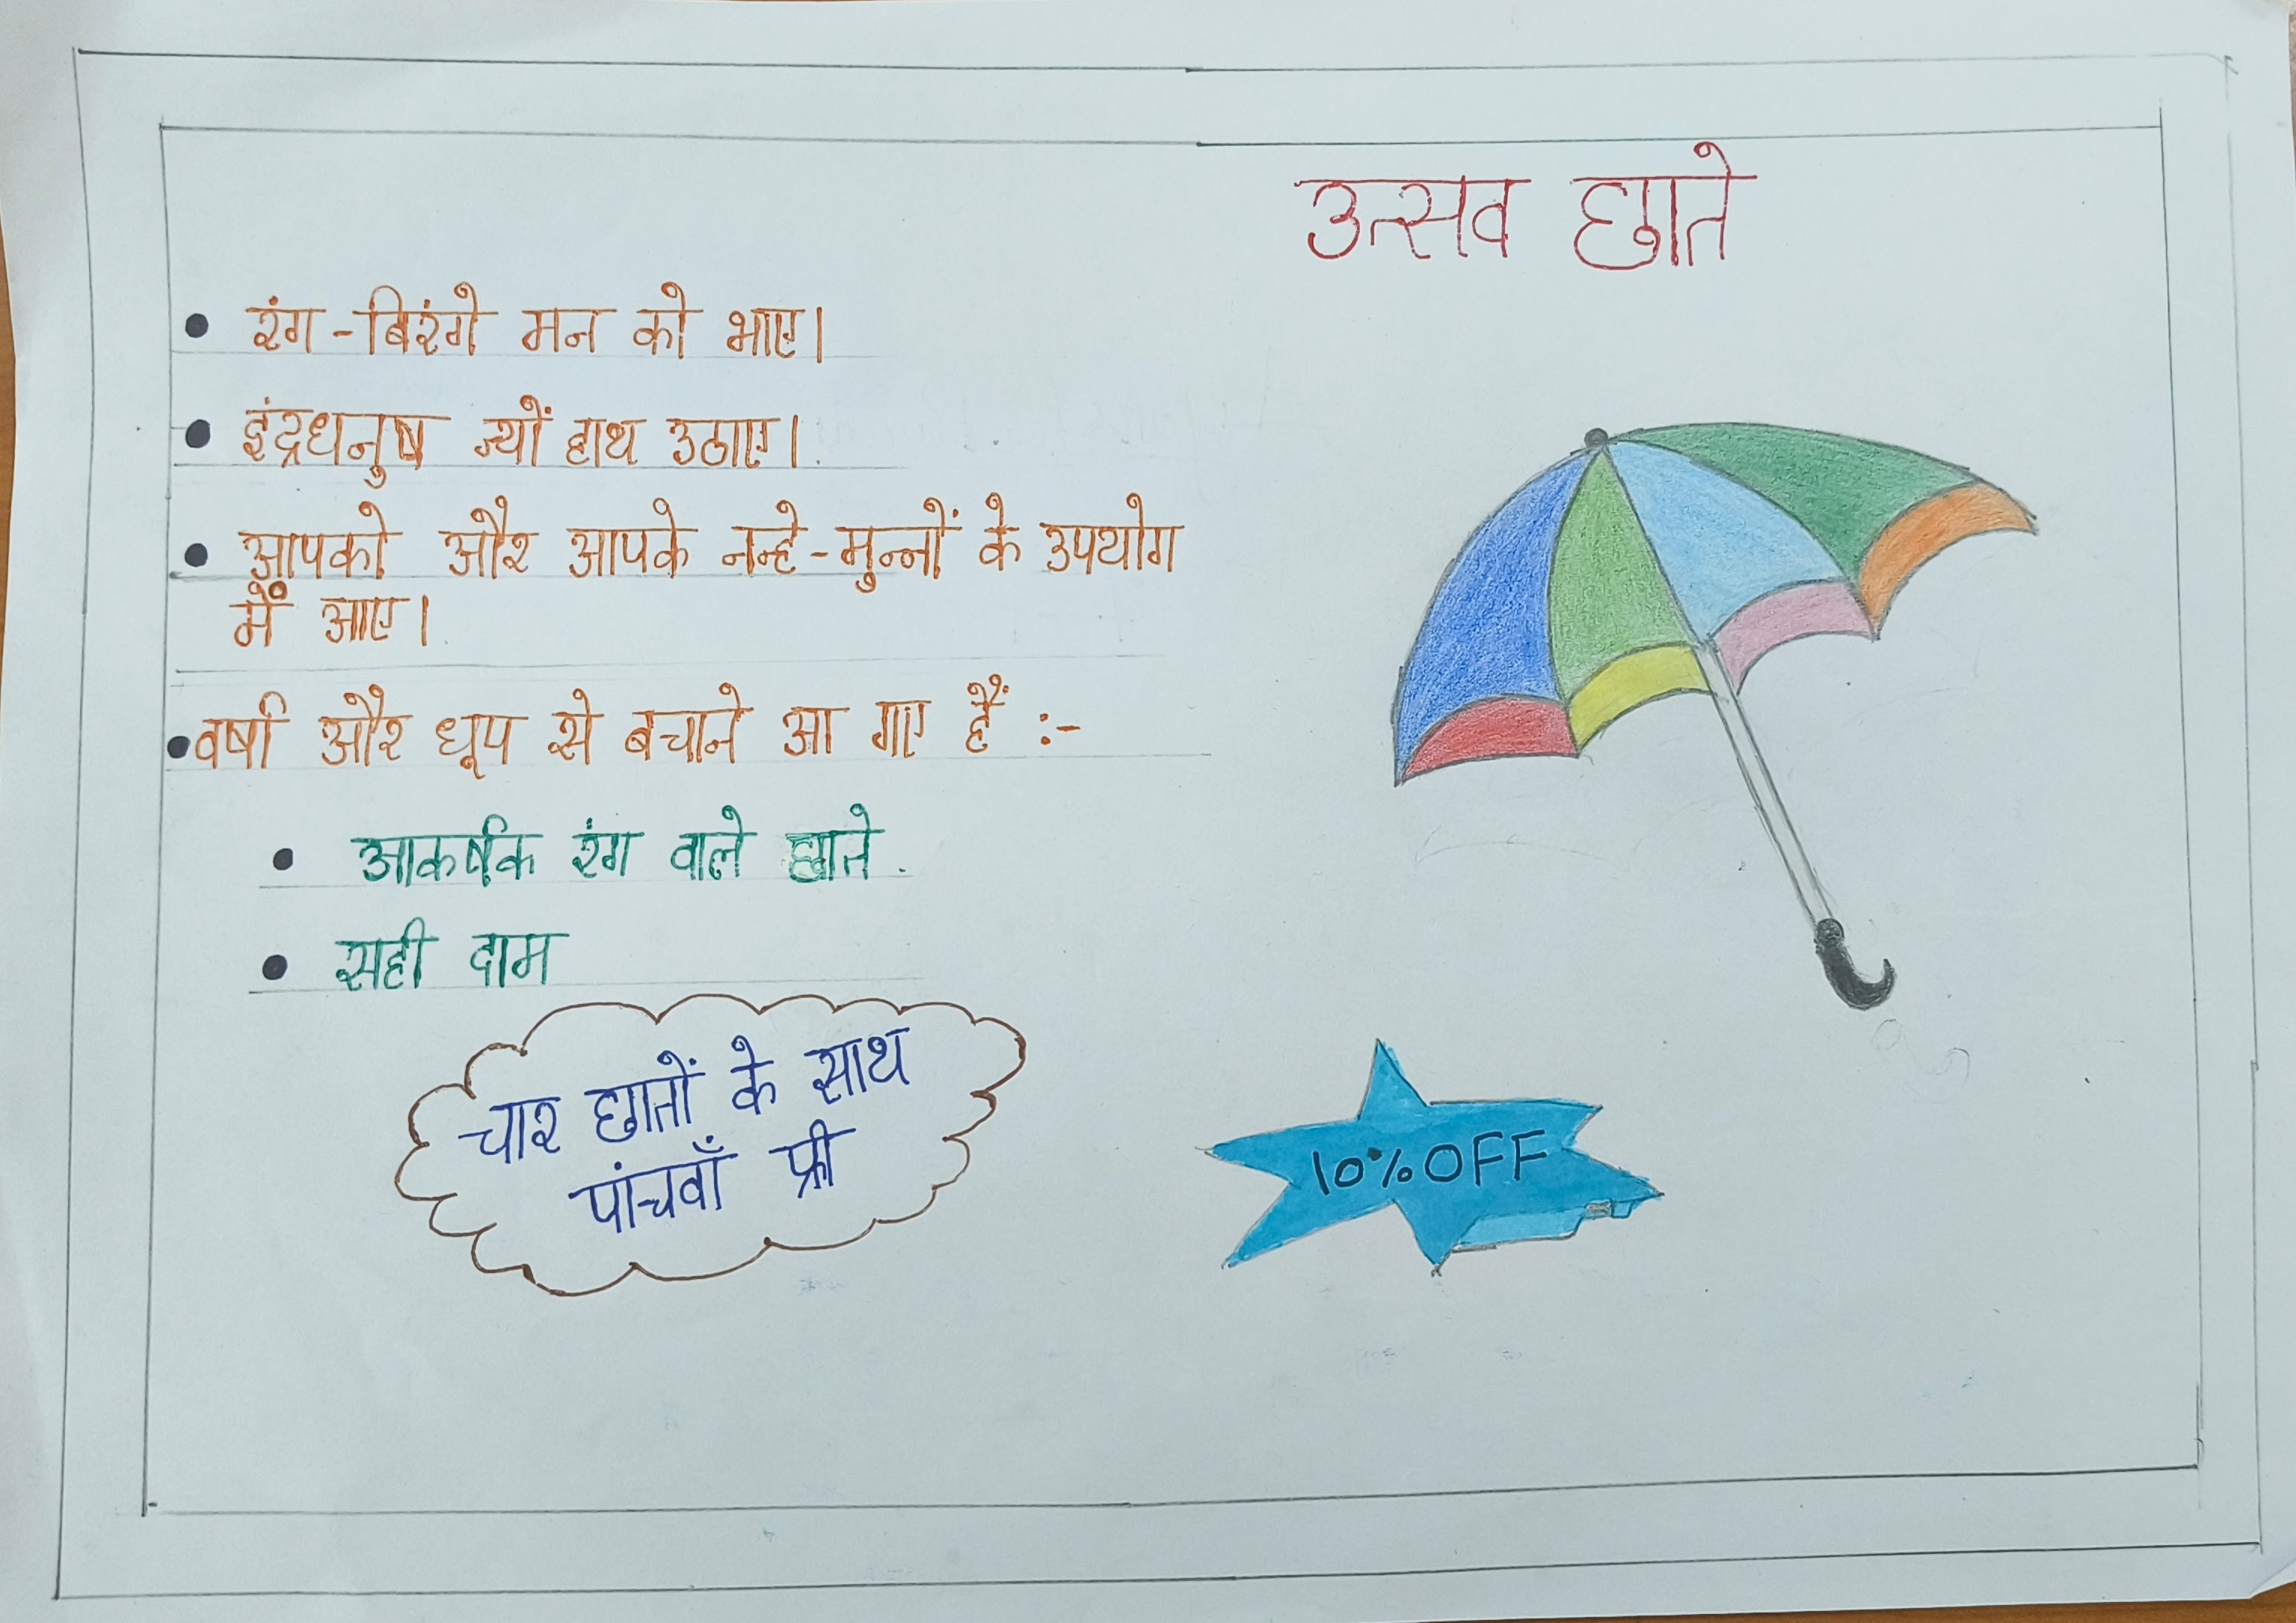 उत्सव छाते
• रंग-बिरंगे मन को भाए।
• इंद्रधनुष ज्यों हाथ उठाए।
• आपको और आपके नन्हे-मुन्नों के उपयोग
में आए।
• वर्षा और धूप से बचाने आ गए हैं :-
• आकर्षक रंग वाले छाते.
• सही दाम
चार छातों के साथ
पांचवाँ फ्री
10% OFF